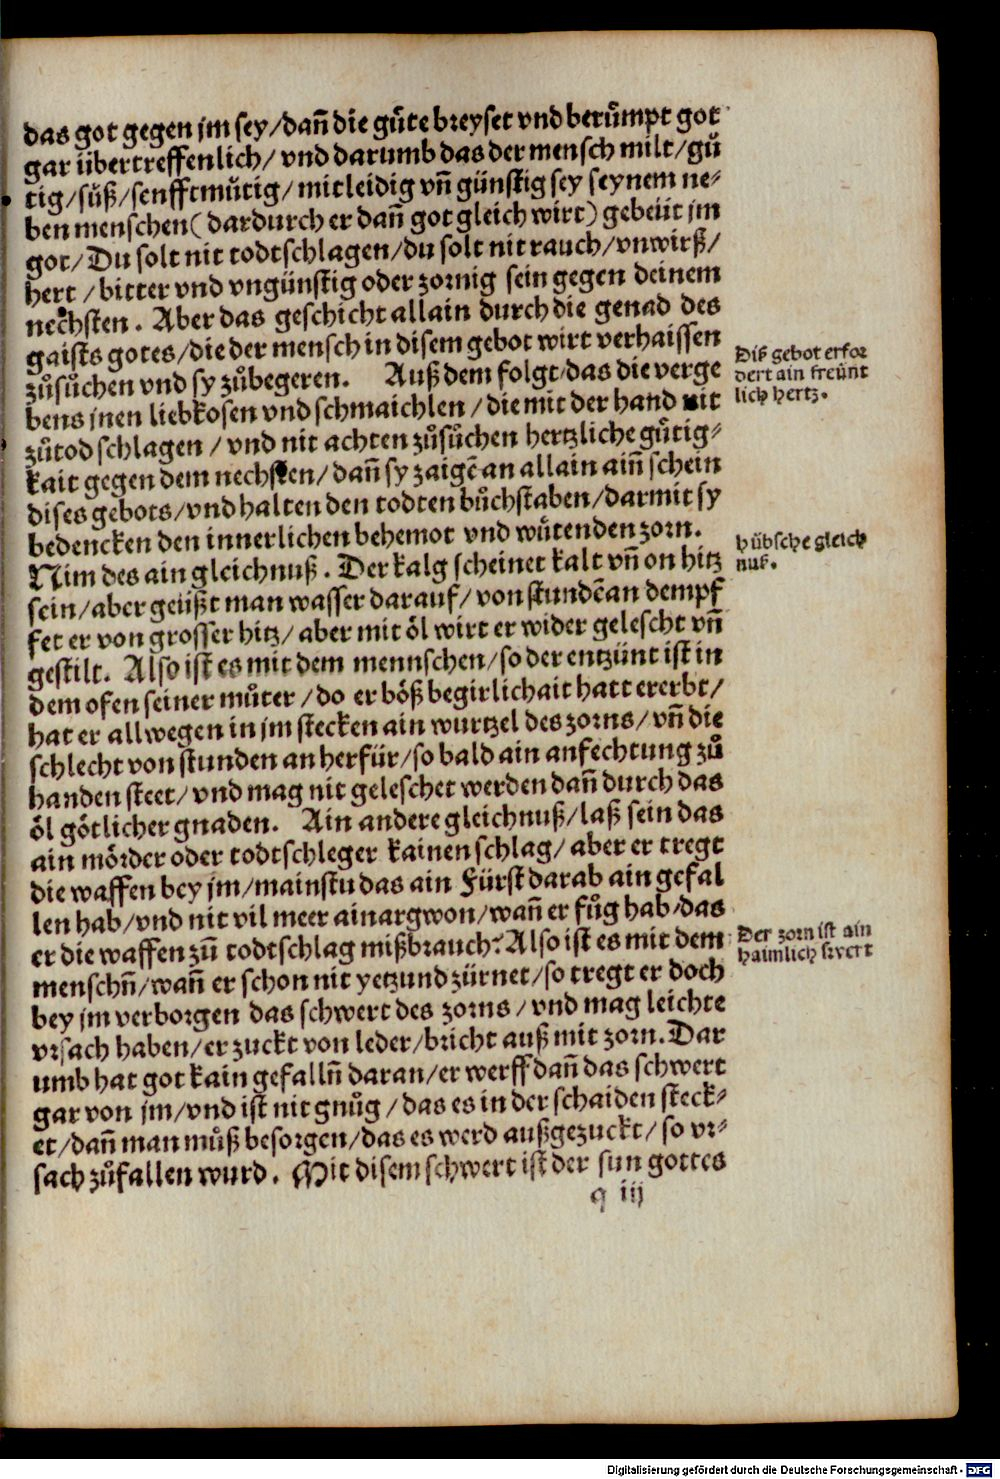 das got gegen jm sey/dañ die gůte breyset vnd berůmpt got
gar übertreffenlich/ vnd darumb das der mensch milt/gů
tig/sůß/senfftmůtig/ mitleidig vñ günstig sey seynem ne⸗
ben menschen( dardurch er dañ got gleich wirt) gebeüt jm
got/ Du solt nit todtschlagen/du solt nit rauch/vnwirß/
hert /bitter vnd vngünstig oder zornig sein gegen deinem
nechsten. Aber das geschicht allain durch die genad des
gaists gotes/die der mensch in disem gebot wirt verhaissen
zůsůchen vnd sy zůbegeren. Auß dem folgt/das die verge
bens jnen liebkosen vnd schmaichlen /die mit der hand nit
zůtod schlagen / vnd nit achten zůsůchen hertzliche gůtig⸗
kait gegen dem nechsten/dañ sy zaigẽ an allain aiñ schein
dises gebots/vnd halten den todten bůchstaben/darmit sy
bedencken den innerlichen behemot vnd wůtenden zorn.
Nim des ain gleichnuß. Der kalg scheinet kalt vñ on hitz
sein/aber geüßt man wasser darauf/ von stundẽ an dempf
fet er von grosser hitz/ aber mit öl wirt er wider gelescht vñ
gestilt. Also ist es mit dem mennschen/so der entzünt ist in
dem ofen seiner můter /do er böß begirlichait hatt ererbt/
hat er allwegen in jm stecken ain wurtzel des zorns/vñ die
schlecht von stunden an herfür/so bald ain anfechtung zů
handen steet/ vnd mag nit geleschet werden dañ durch das
öl götlicher gnaden. Ain andere gleichnuß/laß sein das
ain mörder oder todtschleger kainen schlag/ aber er tregt
die waffen bey jm/mainstu das ain Fürst darab ain gefal
len hab/vnd nit vil meer ain argwon/wañ er fůg hab/das
er die waffen zů todtschlag mißbrauch? Also ist es mit dem
menschñ/wañ er schon nit yetzund zürnet/so tregt er doch
bey jm verborgen das schwert des zorns / vnd mag leichte
vrsach haben/er zuckt von leder/bricht auß mit zorn. Dar
umb hat got kain gefallñ daran/er werff dañ das schwert
gar von jm/vnd ist nit gnůg /das es in der schaiden steck⸗
et/dañ man můß besorgen/das es werd außgezuckt/ so vr⸗
sach zůfallen wurd. Mit disem schwert ist der sun gottes
q iij
Diß gebot erfor
dert ain freünt
lich hertz.
hübsche gleich
nuß.
Der zorn ist ain
haimlich swert
Digitalisierung gefördert durch die Deutsche Forschungsgemeinschaft - DFG